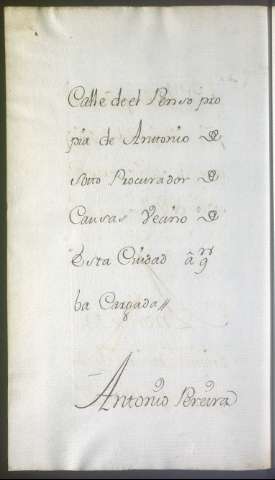 Calle de el Penso pro
pia de Anttonio de
Soto Procurador de
Causas Vecino de
Esta Ciudad â qn
ba Cargada //
Antonio Pereira